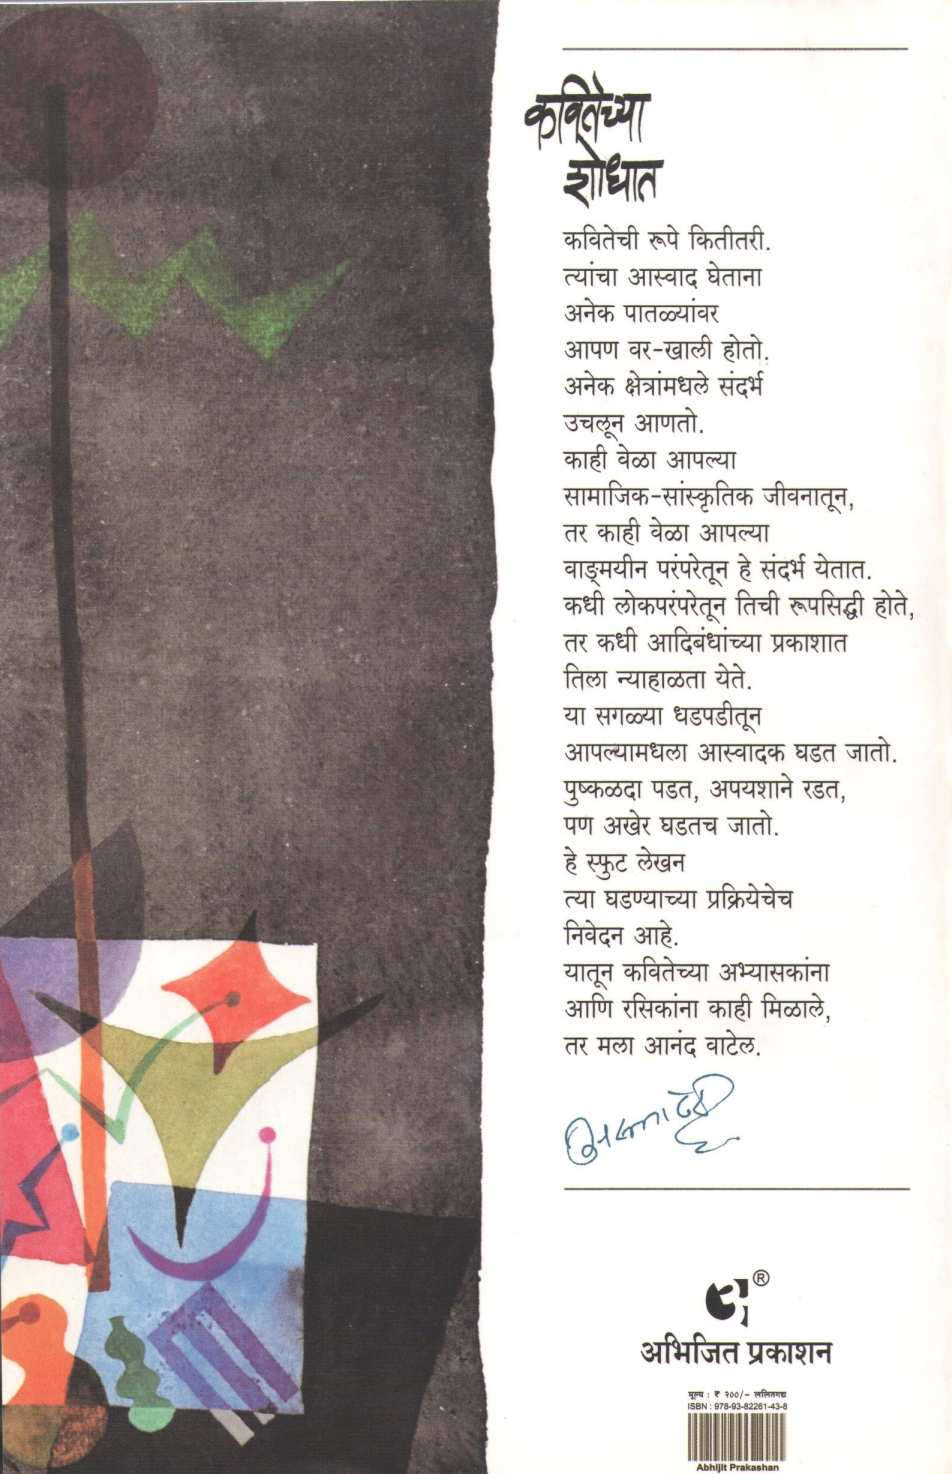 कवितेच्या
शोधात
कवितेची रूपे कितीतरी.
त्यांचा आस्वाद घेताना
अनेक पातळ्यांवर
आपण वर-खाली होतो.
अनेक क्षेत्रांमधले संदर्भ
उचलून आणतो.
काही वेळा आपल्या
सामाजिक-सांस्कृतिक जीवनातून,
तर काही वेळा आपल्या
वाङ्‌मयीन परंपरेतून हे संदर्भ येतात.
कधी लोकपरंपरेतून तिची रूपसिद्धी होते,
तर कधी आदिबंधांच्या प्रकाशात
तिला न्याहाळता येते.
या सगळ्या धडपडीतून
आपल्यामधला आस्वादक घडत जातो.
पुष्कळदा पडत, अपयशाने रडत,
पण अखेर घडतच जातो.
हे स्फुट लेखन
त्या घडण्याच्या प्रक्रियेचेच
निवेदन आहे.
यातून कवितेच्या अभ्यासकांना
आणि रसिकांना काही मिळाले,
तर मला आनंद वाटेल.
®
अभिजित प्रकाशन
मूल्य : ₹ २००/- ललितगद्य
ISBN : 978-93-82261-43-8
Abhijit Prakashan